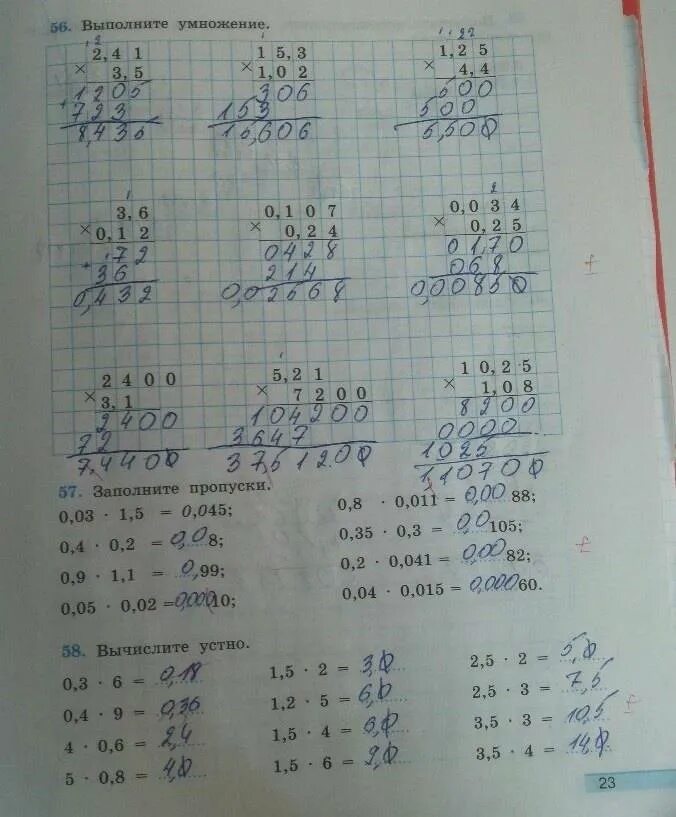 56. Выполните умножение.
1 2
2,41
× 3,5
1205
+ 723
8,435
1
15,3
× 1,02
306
153
15,606
1 1 2 2
1,25
× 4,4
500
500
5,500
1
3,6
× 0,12
72
+ 36
0,432
0,107
× 0,24
0428
214
0,02568
2
0,034
× 0,25
0170
068
0,00850
2400
× 3,1
2400
72
7,4400
1
5,21
× 7200
104200
3647
37512.00
10,25
× 1,08
8200
0000
1025
110700
57. Заполните пропуски.
0,03 · 1,5 = 0,045;
0,4 · 0,2 = 0,08;
0,9 · 1,1 = 0,99;
0,05 · 0,02 = 0,00010;
0,8 · 0,011 = 0,0088;
0,35 · 0,3 = 0,0105;
0,2 · 0,041 = 0,0082;
0,04 · 0,015 = 0,00060.
58. Вычислите устно.
0,3 · 6 = 0,18
0,4 · 9 = 0,36
4 · 0,6 = 2,4
5 · 0,8 = 4,0
1,5 · 2 = 3,0
1,2 · 5 = 6,0
1,5 · 4 = 6,0
1,5 · 6 = 9,0
2,5 · 2 = 5,0
2,5 · 3 = 7,5
3,5 · 3 = 10,5
3,5 · 4 = 14,0
23